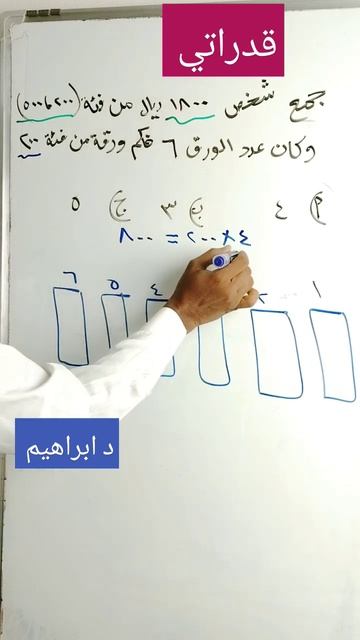 قدراتي
جمع شخص ١٨٠٠ ريال من فئة (٢٠٠ ، ٥٠٠)
وكان عدد الورق ٦ فكم ورقة من فئة ٢٠٠
أ) ٤ ب) ٣ ج) ٥
٤ × ٢٠٠ = ٨٠٠
١ ٢ ٤ ٥ ٦
د ابراهيم